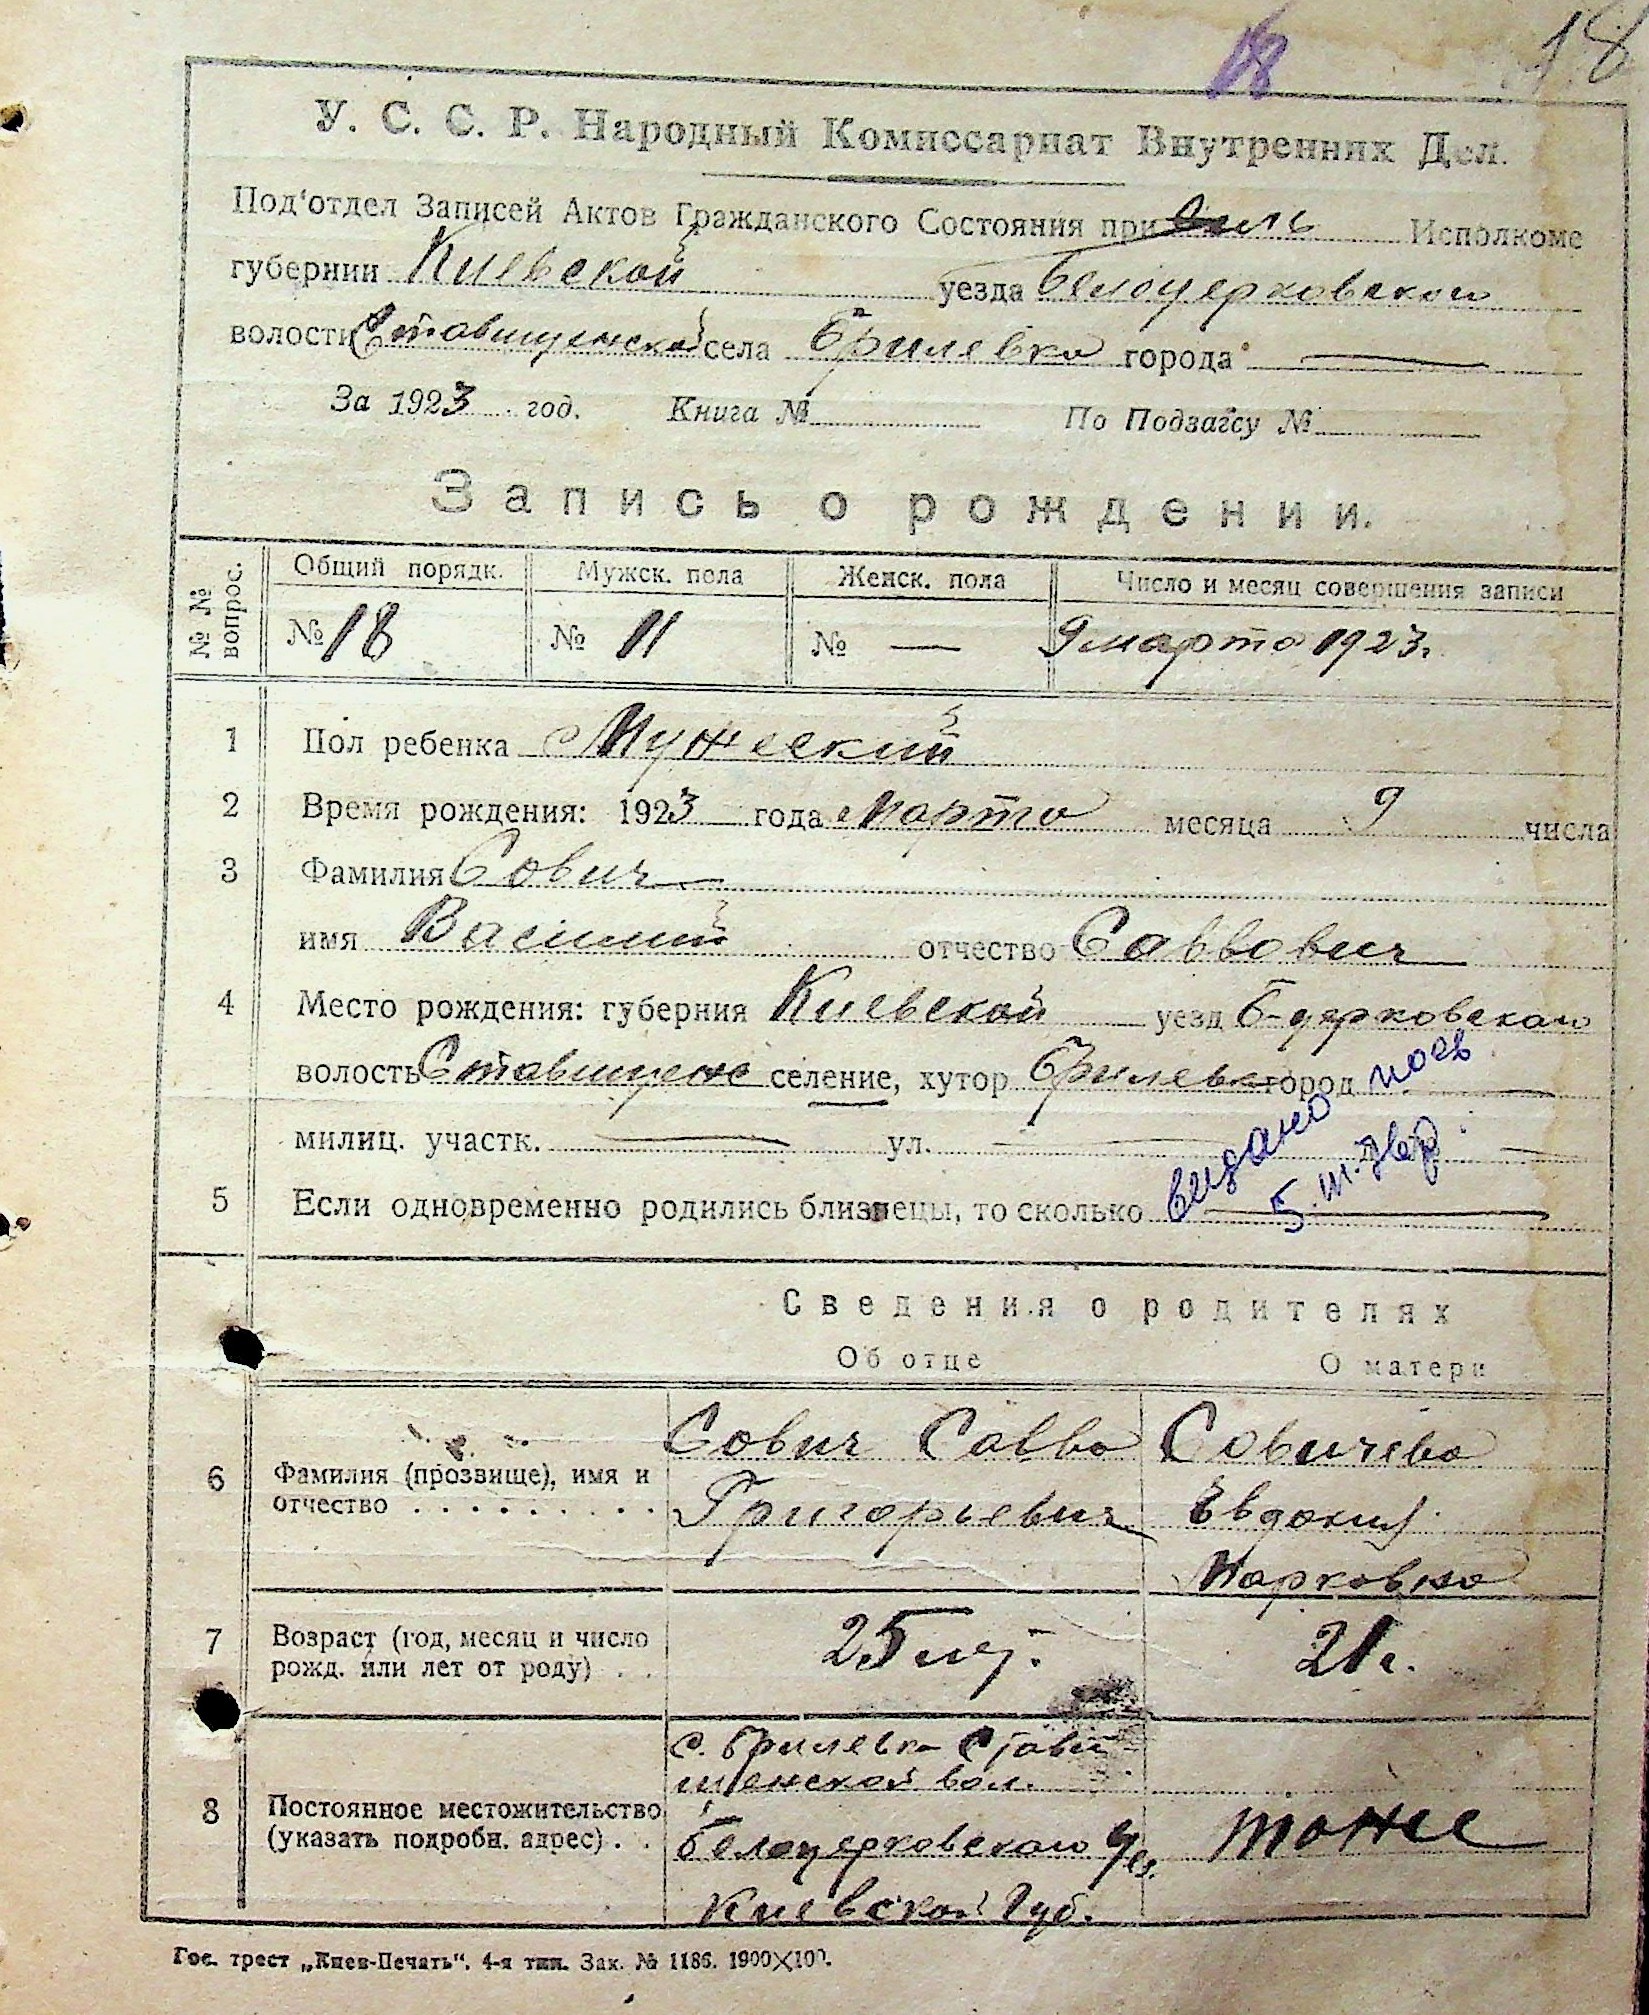 18 18
У. С. С. Р. Народный Комиссариат Внутренних Дел.
Под'отдел Записей Актов Гражданского Состояния при Исполкоме
губернии Киевской уезда Белоцерковского
волости Ставищенской села Брилевка города —
За 1923 год. Книга № По Подзагсу №
Запись о рождении.
№ № вопрос. Общий порядк. Мужск. пола Женск. пола Число и месяц совершения записи
№ 18 № 11 № — 9 марта 1923.
1 Пол ребенка Мужеский
2 Время рождения: 1923 года марта месяца 9 числа
3 Фамилия Сович
имя Василий отчество Саввович
4 Место рождения: губерния Киевской уезд Б-церковского
волость Ставищенс селение, хутор Брилевка город —
милиц. участк. — ул. —
видано
5 Если одновременно родились близнецы, то сколько —
Сведения о родителях
Об отце О матери
Сович Савва Совичева
6 Фамилия (прозвище), имя и
отчество . . . . . . . . . Григорьевич Евдокия
Марковна
7 Возраст (год, месяц и число
рожд. или лет от роду) . . 25 лет. 21 г.
с. Брилевка Стави
щенской вол.
8 Постоянное местожительство
(указать подробн. адрес) . . Белоцерковского уез. тоже
Киевской губ.
Гос. трест „Киев-Печать“. 4-я тип. Зак. № 1186. 1900×100.